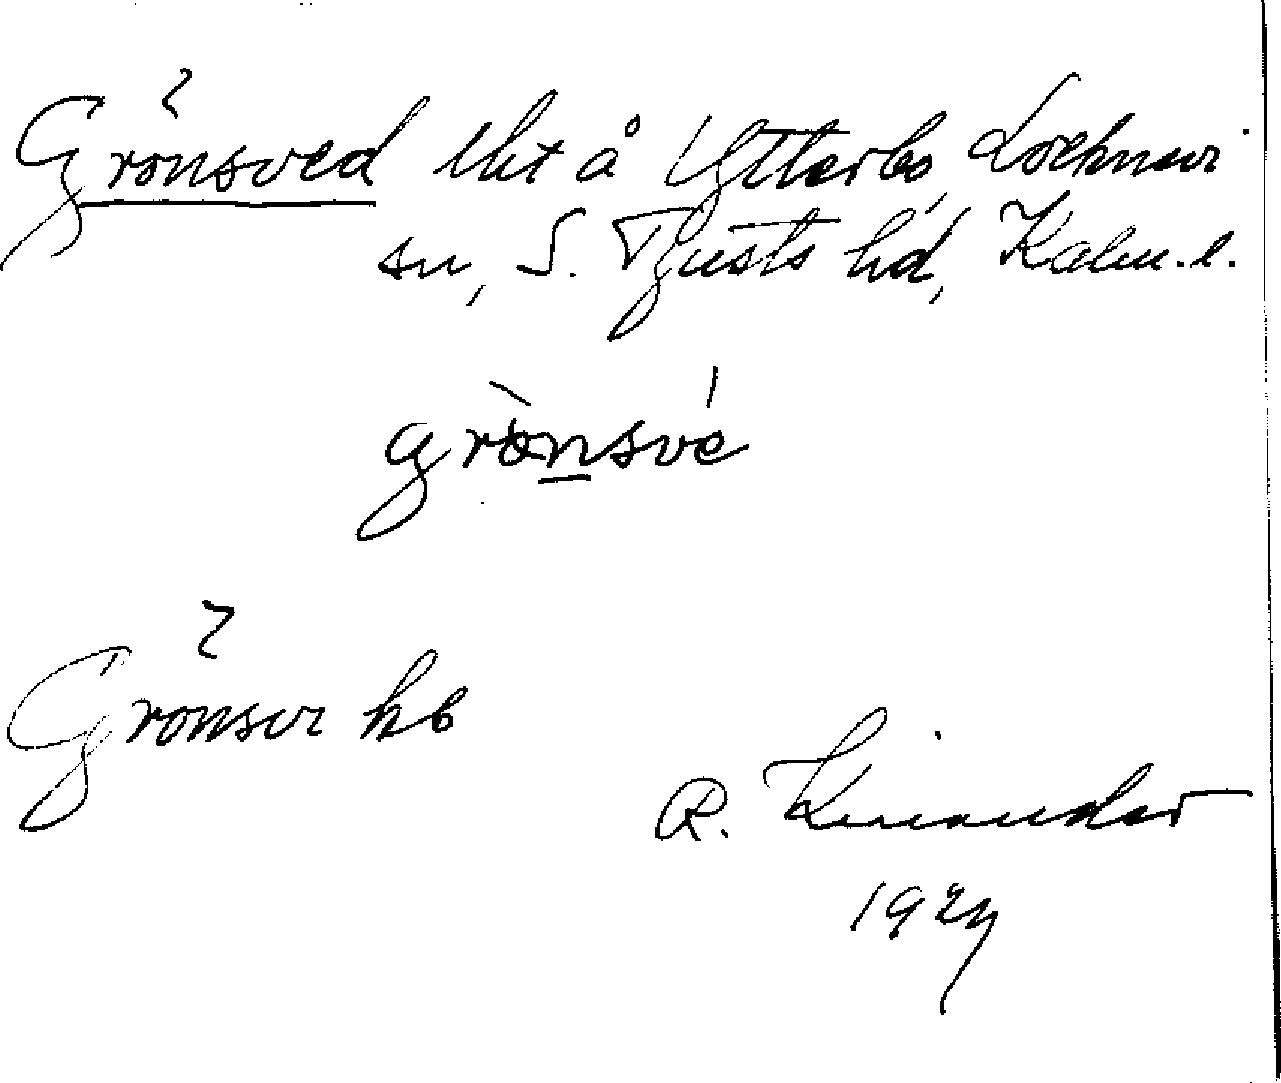 Grönsved lht å Ytterbo, Locknevi
sn, S. Tjusts hd, Kalm. l.
grònsvé
Grönsvr hb
R. Kinander
1927